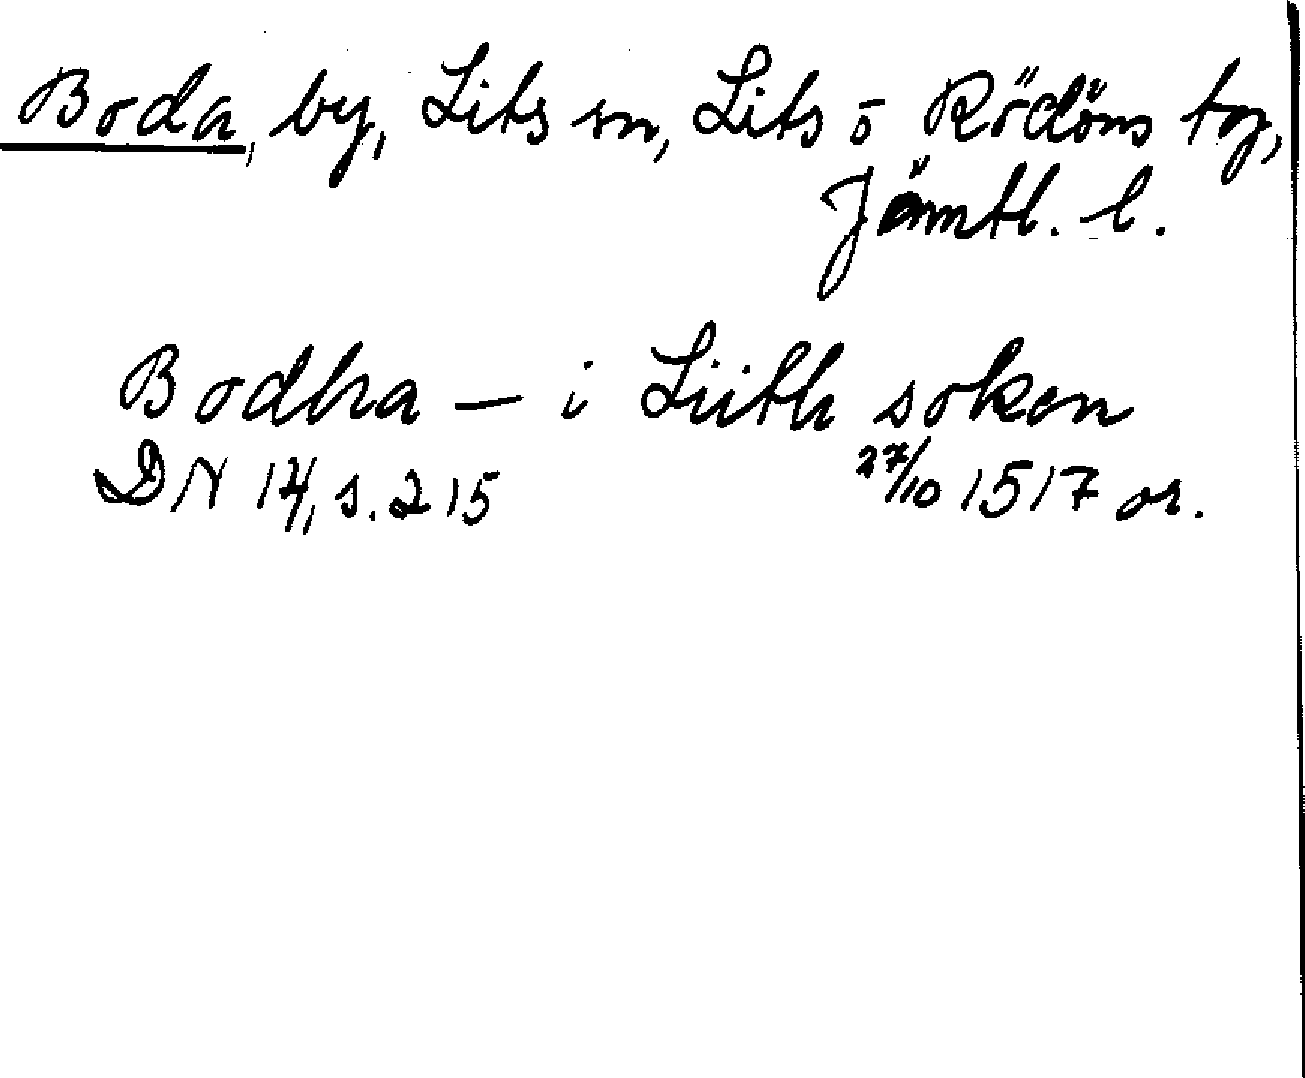 Boda, by, Lits sn, Lits o Rödöns tg,
Jämtl. l.
Bodha – i Liith soken
DN 14, s. 215 27/10 1517 or.